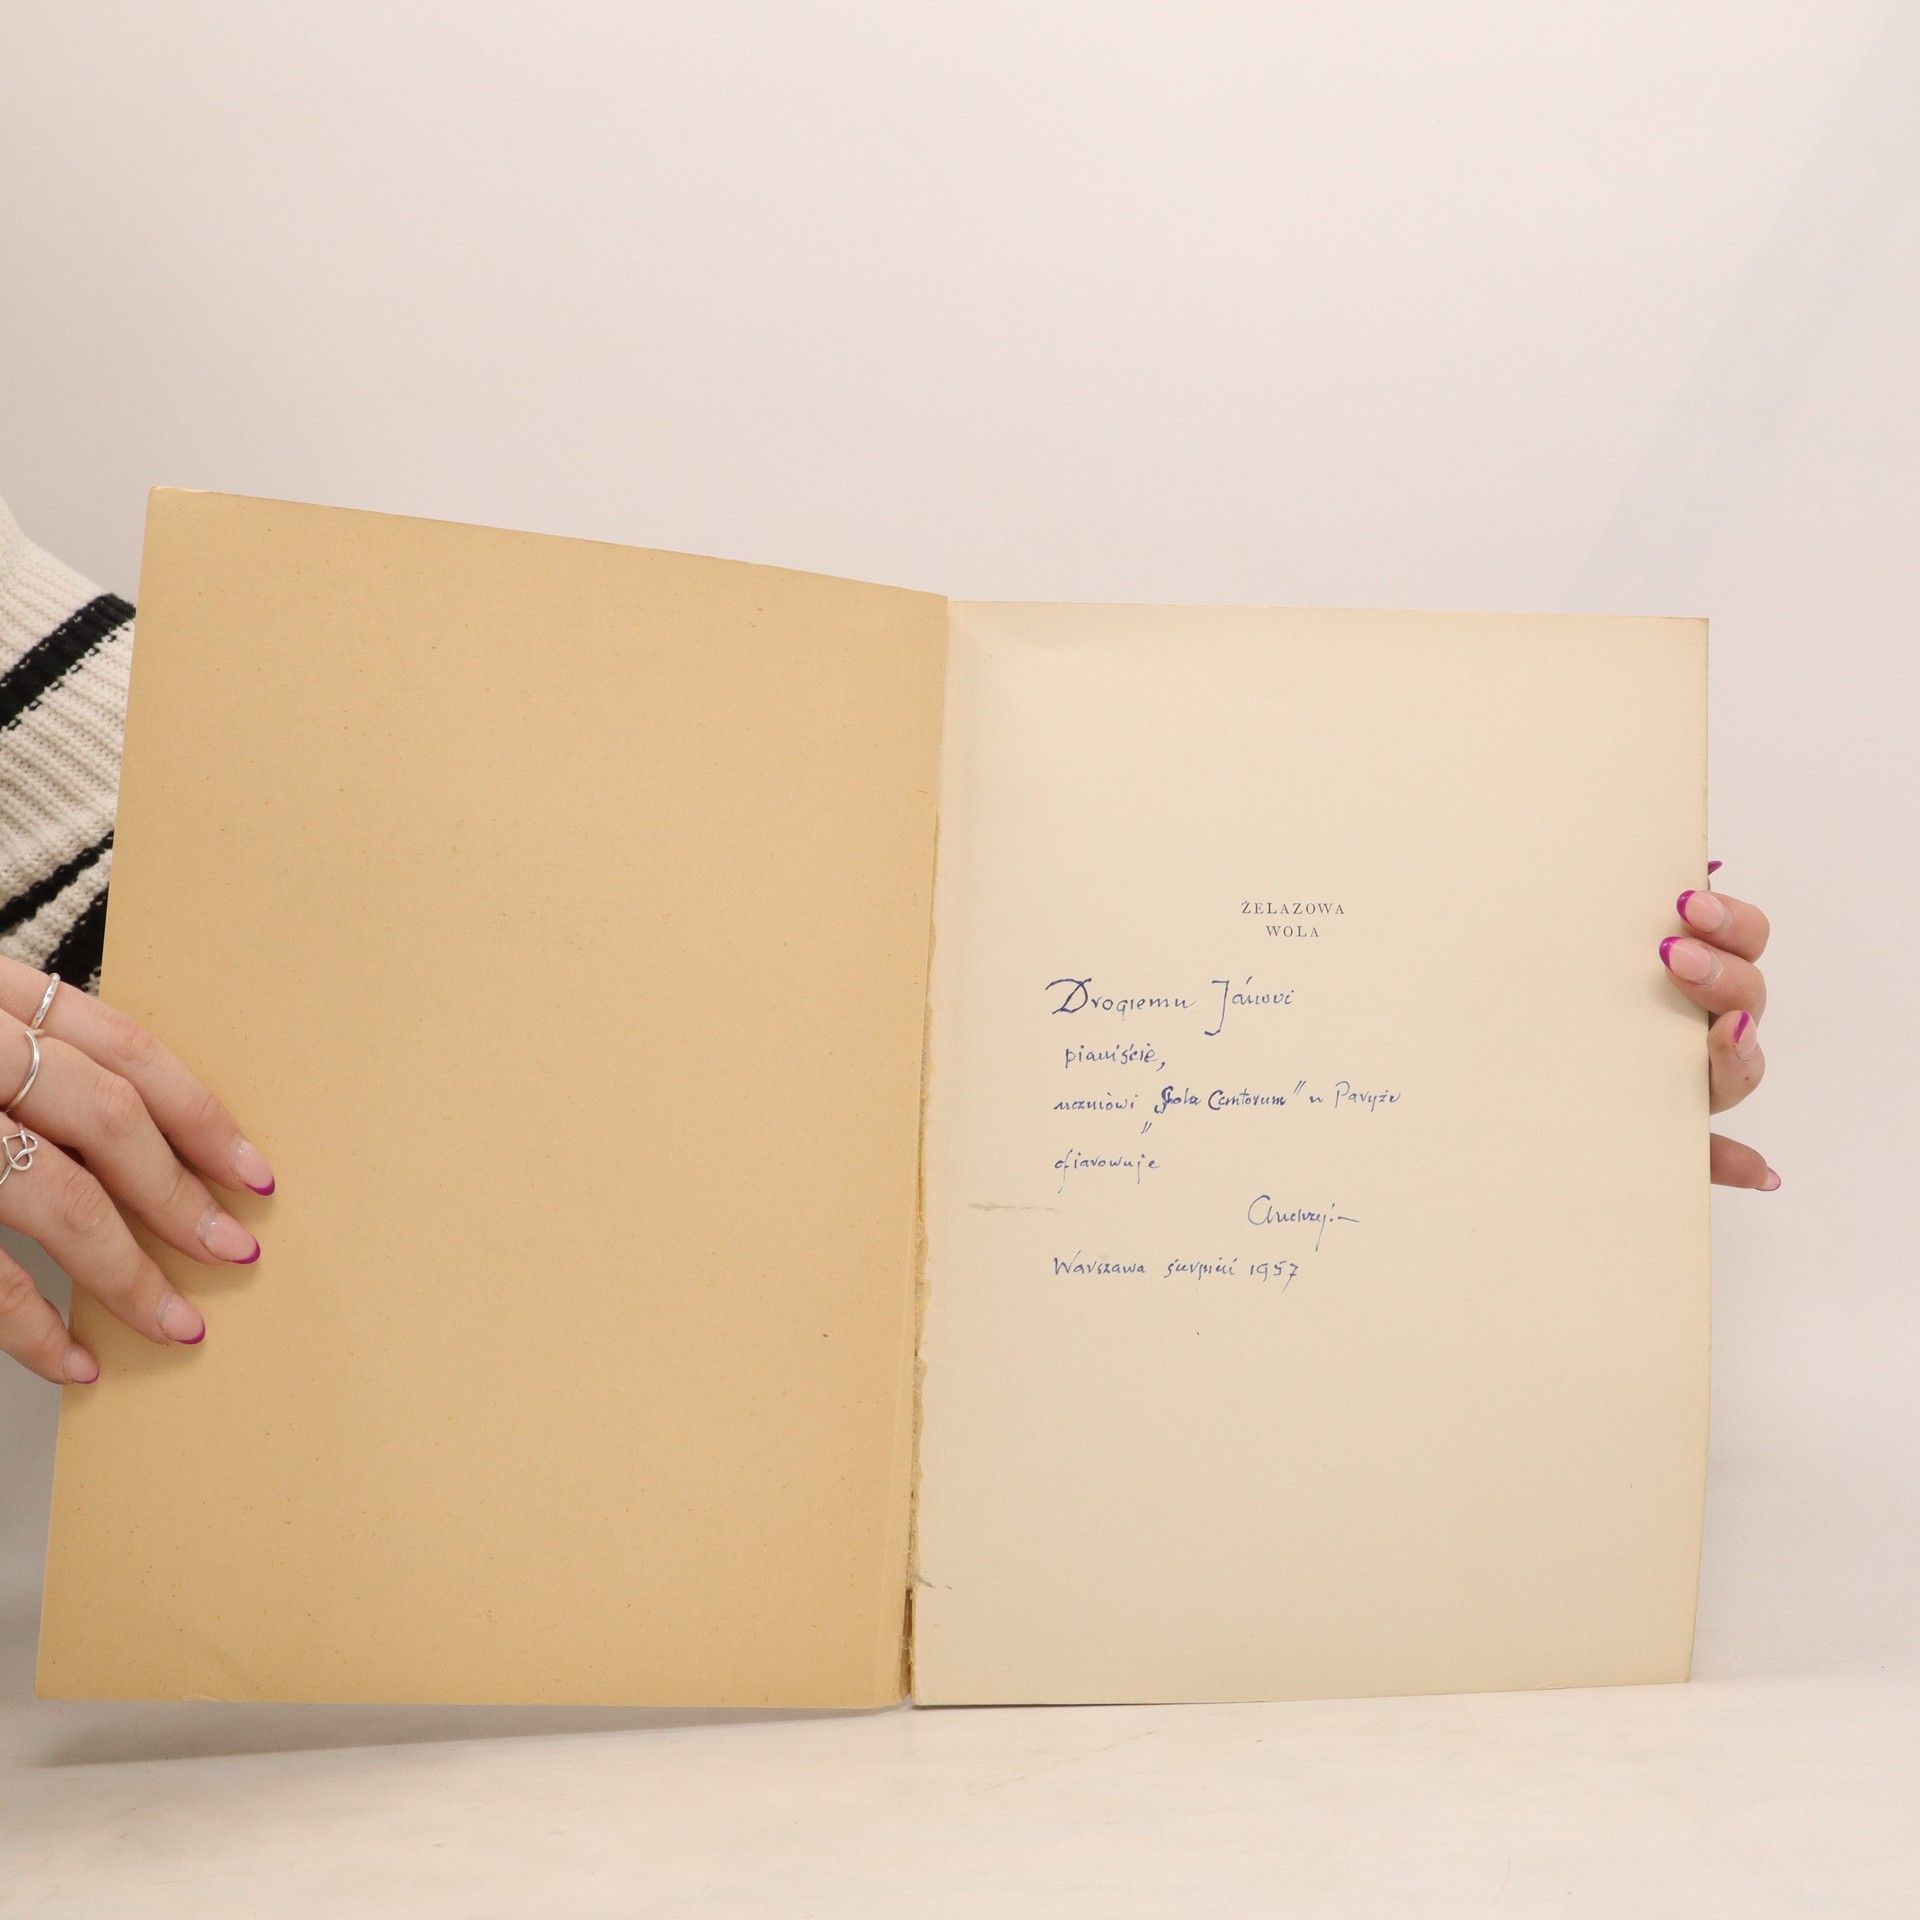 ŻELAZOWA
WOLA
Drogiemu Janowi
pianiście,
uczniowi „Schola Cantorum” w Paryżu
ofiarowuje
Andrzej
Warszawa sierpień 1957